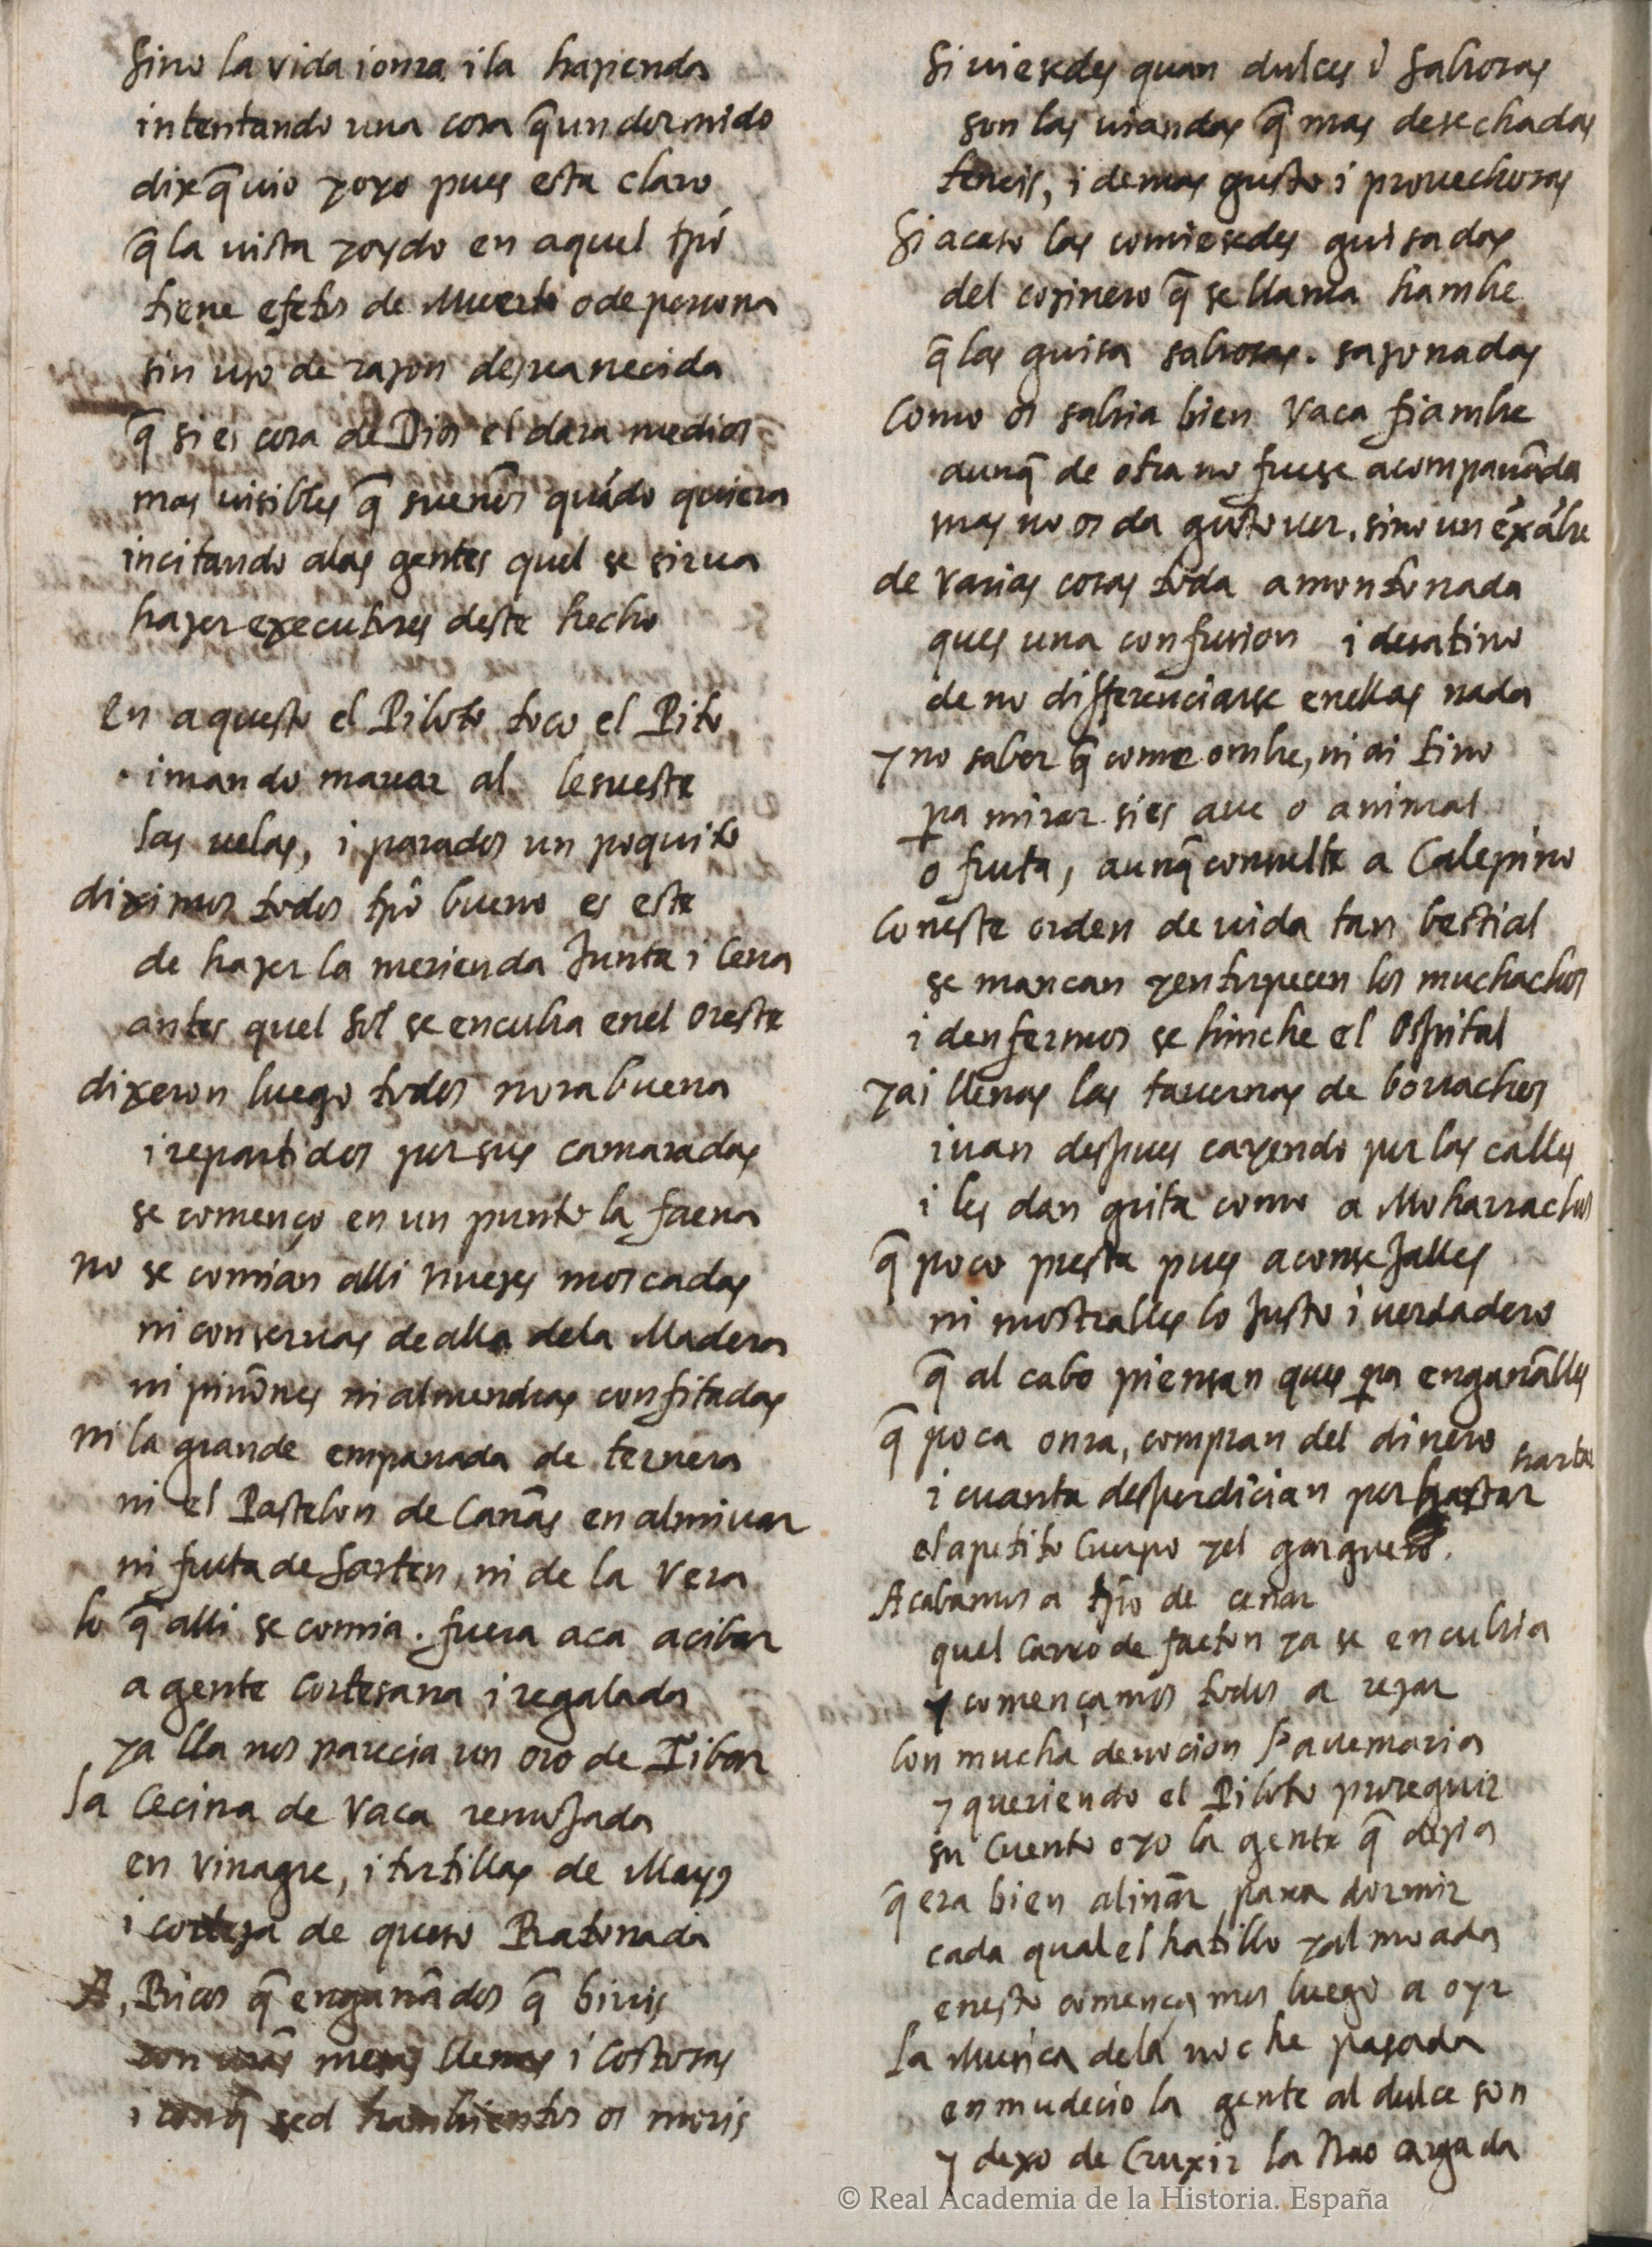 sino la vida i onra i la hazienda
intentando una cosa q̃ un dormido
dixe q̃ vio y oyo pues esta claro
q̃ la vista y oydo en aquel tpõ
tiene efetos de Muerto o de persona
sin uso de razon desvanecida
q̃ si es cosa de Dios el dara medios
mas visibles q̃ sueños quãdo quiera
incitando a las gentes quel se sirva
hazer executores deste hecho
En aquesto el Piloto toco el Pito
i mando marear al lesueste
las velas, i parados un poquito
diximos todos tpõ bueno es este
de hazer la merienda Junta i Cena
antes quel Sol se encubra enel Oeste
dixeron luego todos norabuena
i repartidos por sus camaradas
se començo en un punto la faena
no se comian alli nuezes moscadas
ni conservas de alla dela Madera
ni piñones ni almendras confitadas
ni la grande empanada de ternera
ni el Pastelon de Cañas en almivar
ni fruta de Sarten, ni de la Vera
lo q̃ alli se comia. fuera aca acibar
a gente Cortesana i regalada
y a lla nos parecia un oro de Tibar
la Cecina de Vaca remojada
en vinagre, i tortillas de Mayz
i corteza de queso Ratonada
A, Ricos q̃ engañados q̃ bivis
con vr̃as mesas llenas i Costosas
i conq̃ sed hambrientos os moris
Si viesedes quan dulces i Sabrosas
son las viandas q̃ mas desechadas
teneis, i demas gusto i provechosas
Si aceso las comiesedes guisadas
del cozinero q̃ se llama hambre
q̃ las guisa sabrosas. sazonadas
Como os sabria bien Vaca fiambre
aunq̃ de otra no fuese acompañada
mas no os da gusto ver. sino un ẽxãbre
de varias cosas toda amontonada
ques una confusion i desatino
de no differenciarse enellas nada
y no saber q̃ come ombre, ni ai tino
pa mirar si es ave o animal
o fruta, aunq̃ consulte a Calepino
Coneste orden de vida tan bestial
se mancan y entorpecen los muchachos
i denfermos se hinche el Ospital
y ai llenas las tavernas de borrachos
i van despues cayendo por las calles
i les dan grita como a Moharrachos
q̃ poco presta pues aconseJalles
ni mostralles lo Justo i verdadero
q̃ al cabo piensan ques pa engañalles
q̃ poca onra, compran del dinero
hartar
i cuanta desperdician por hartar
el apetito Cuerpo y el garguero.
Acabamos a tpõ de cenar
quel Carro de faeton ya se encubria
y començamos todos a rezar
Con mucha devocion l avemaria
y queriendo el Piloto proseguir
su Cuento oyo la gente q̃ dezia
q̃ era bien aliñar para dormir
cada qual el hatillo y almoada
enesto començamos luego a oyr
la Musica dela noche pasada
enmudecio la gente al dulce son
y dexo de Cruxir la Nao cargada
© Real Academia de la Historia. España